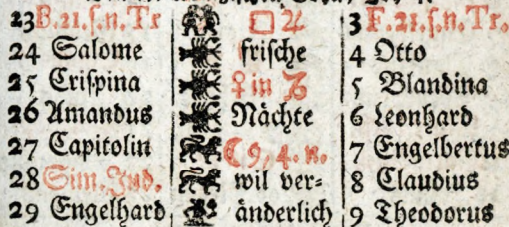 23 B. 21. s. n. Tr □ ♃ 3 F. 21. s. n. Tr.
24 Salome frische 4 Otto
25 Crispina ♀ in ♑ 5 Blandina
26 Amandus Nächte 6 Leonhard
27 Capitolin ☾ 9, 4. n. 7 Engelbertus
28 Sim. Jud. wil ver= 8 Claudius
29 Engelhard änderlich 9 Theodorus